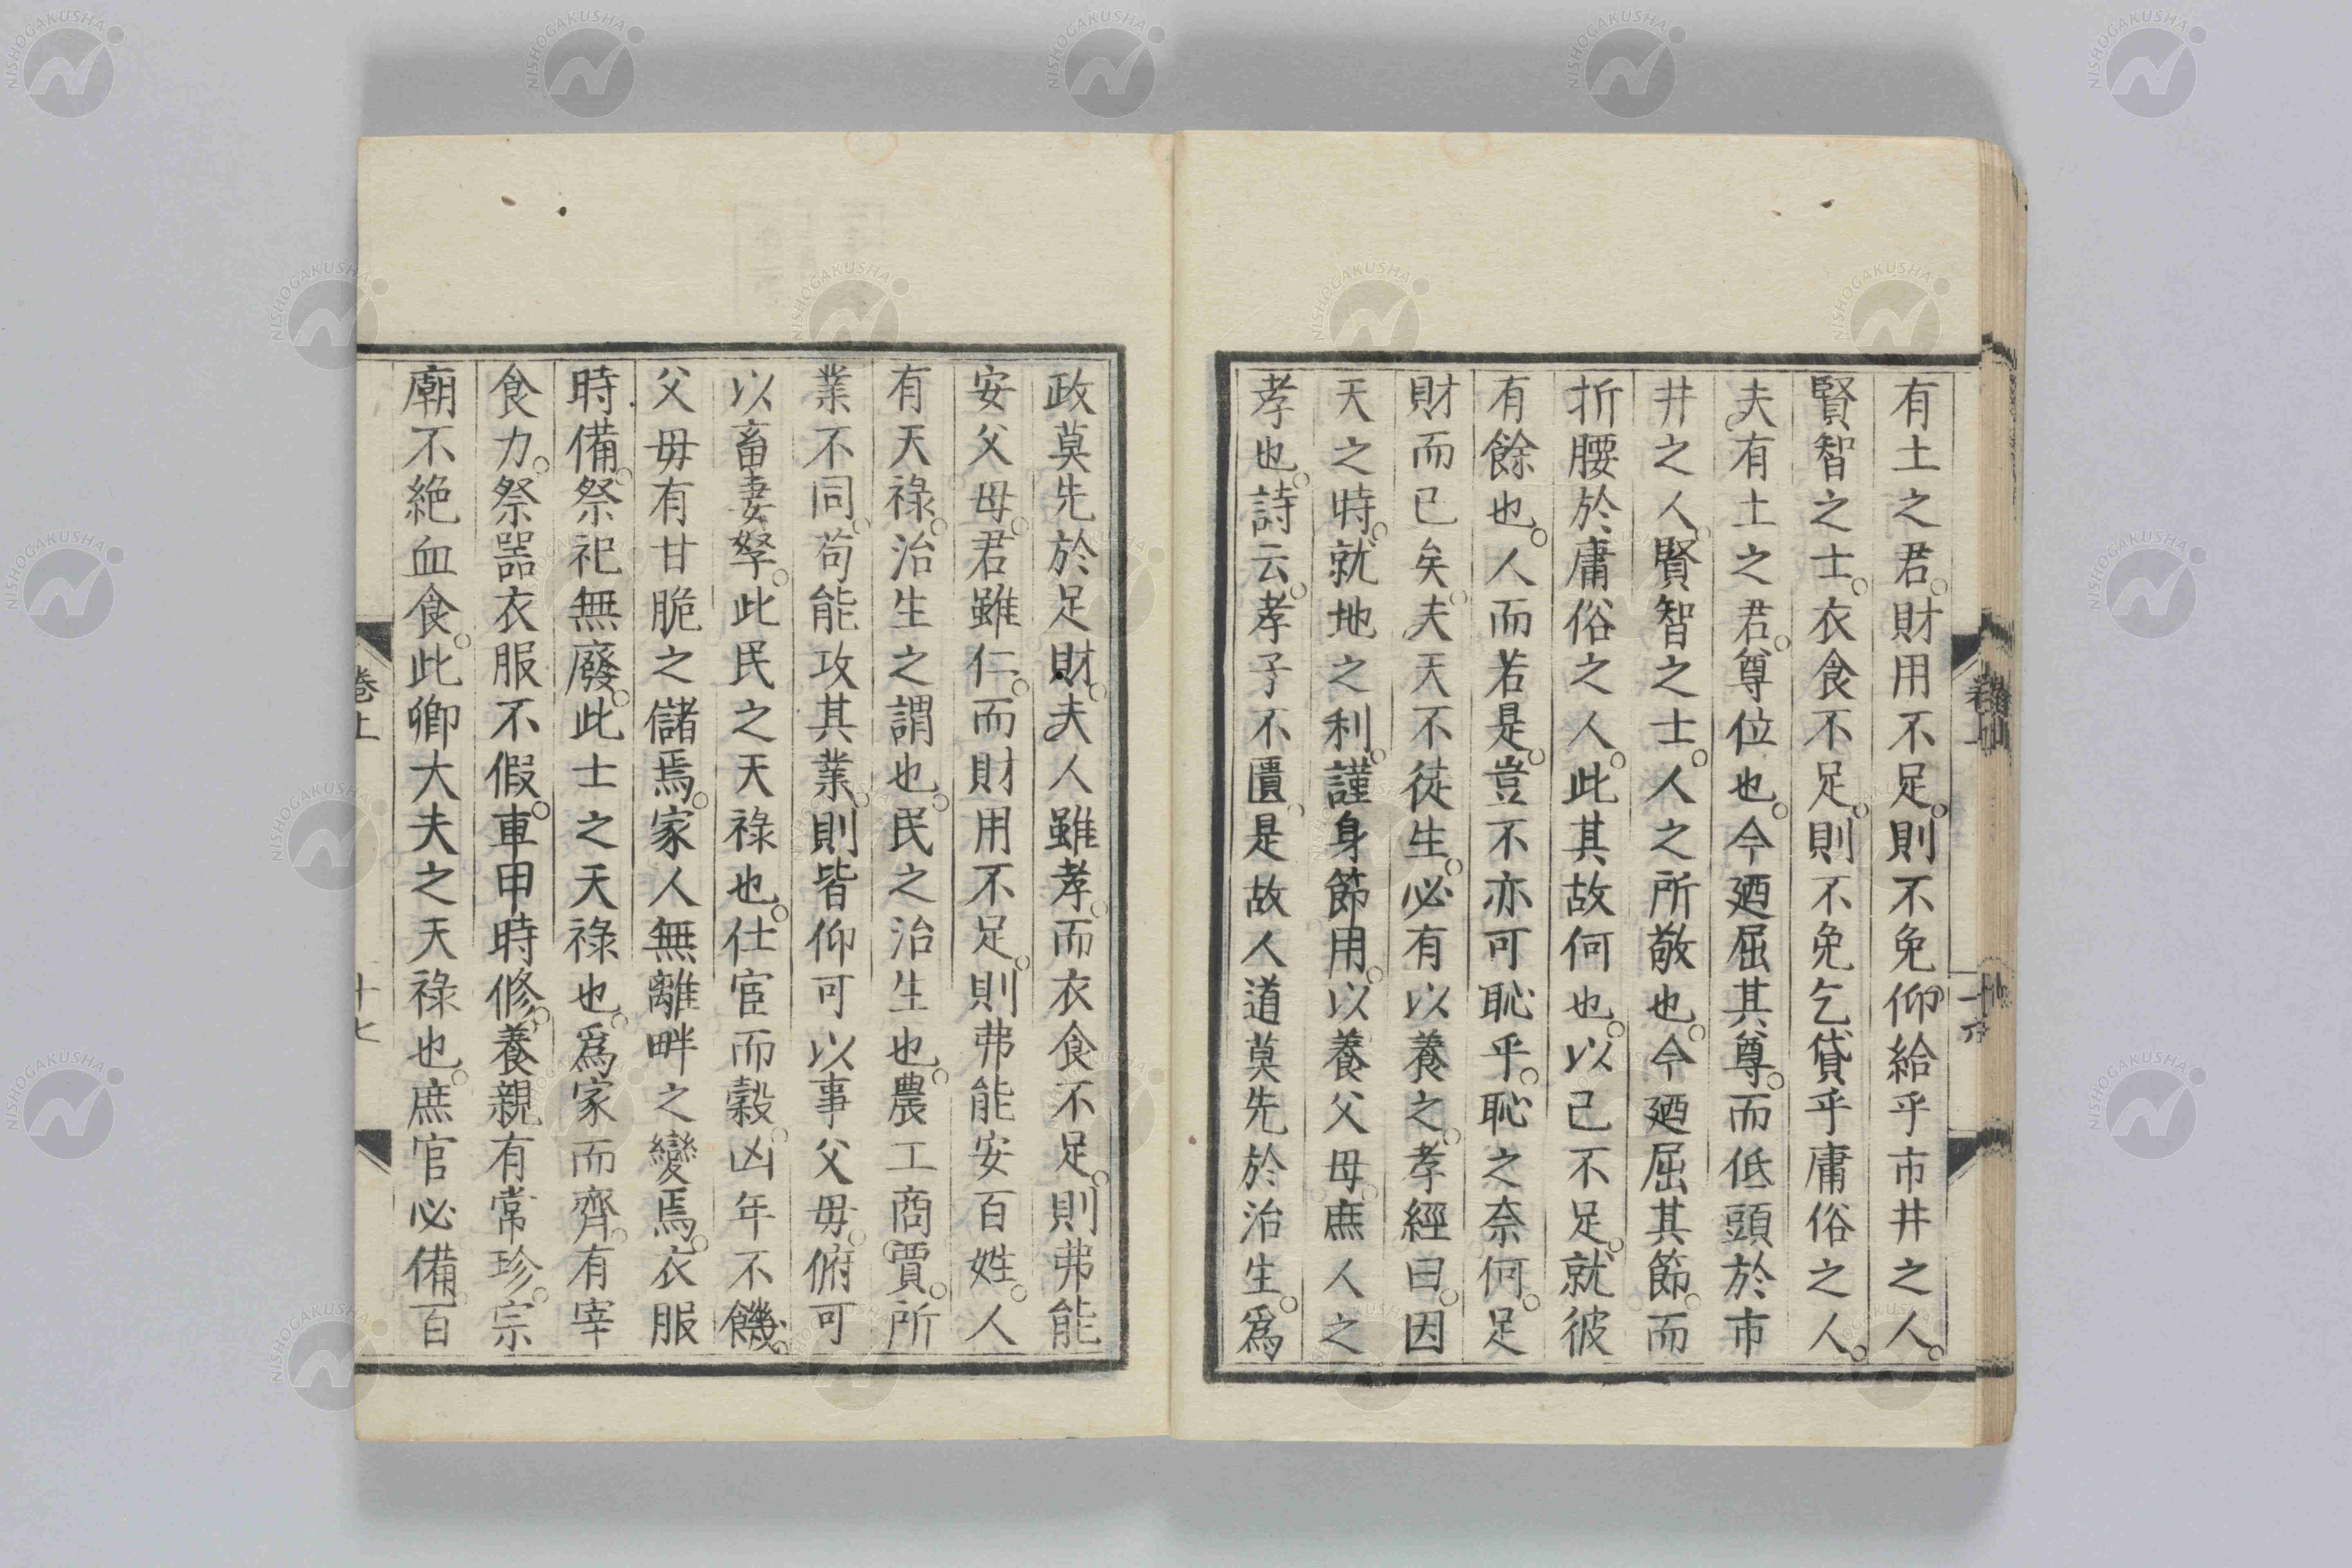 有土之君。財用不足。則不免仰給乎市井之人。
賢智之士。衣食不足。則不免乞貸乎庸俗之人。
夫有土之君。尊位也。今廼屈其尊。而低頭於市
井之人。賢智之士。人之所敬也。今廼屈其節。而
折腰於庸俗之人。此其故何也。以己不足。就彼
有餘也。人而若是。豈不亦可恥乎。恥之奈何。足
財而已矣。夫天不徒生。必有以養之。孝經曰。因
天之時。就地之利。謹身節用。以養父母。庶人之
孝也。詩云。孝子不匱。是故人道莫先於治生。爲
政莫先於足財。夫人雖孝。而衣食不足。則弗能
安父母。君雖仁。而財用不足。則弗能安百姓。人
有天祿。治生之謂也。民之治生也。農工商賈。所
業不同。苟能攻其業。則皆仰可以事父毋。俯可
以畜妻孥。此民之天祿也。仕宦而穀。凶年不饑。
父毋有甘脆之儲焉。家人無離畔之變焉。衣服
時備。祭祀無廢。此士之天祿也。爲家而齊。有宰
食力。祭噐衣服不假。車甲時修。養親有常珍。宗
廟不絶血食。此卿大夫之天祿也。庶官必備。百
卷上
十七
NISHOGAKUSHA